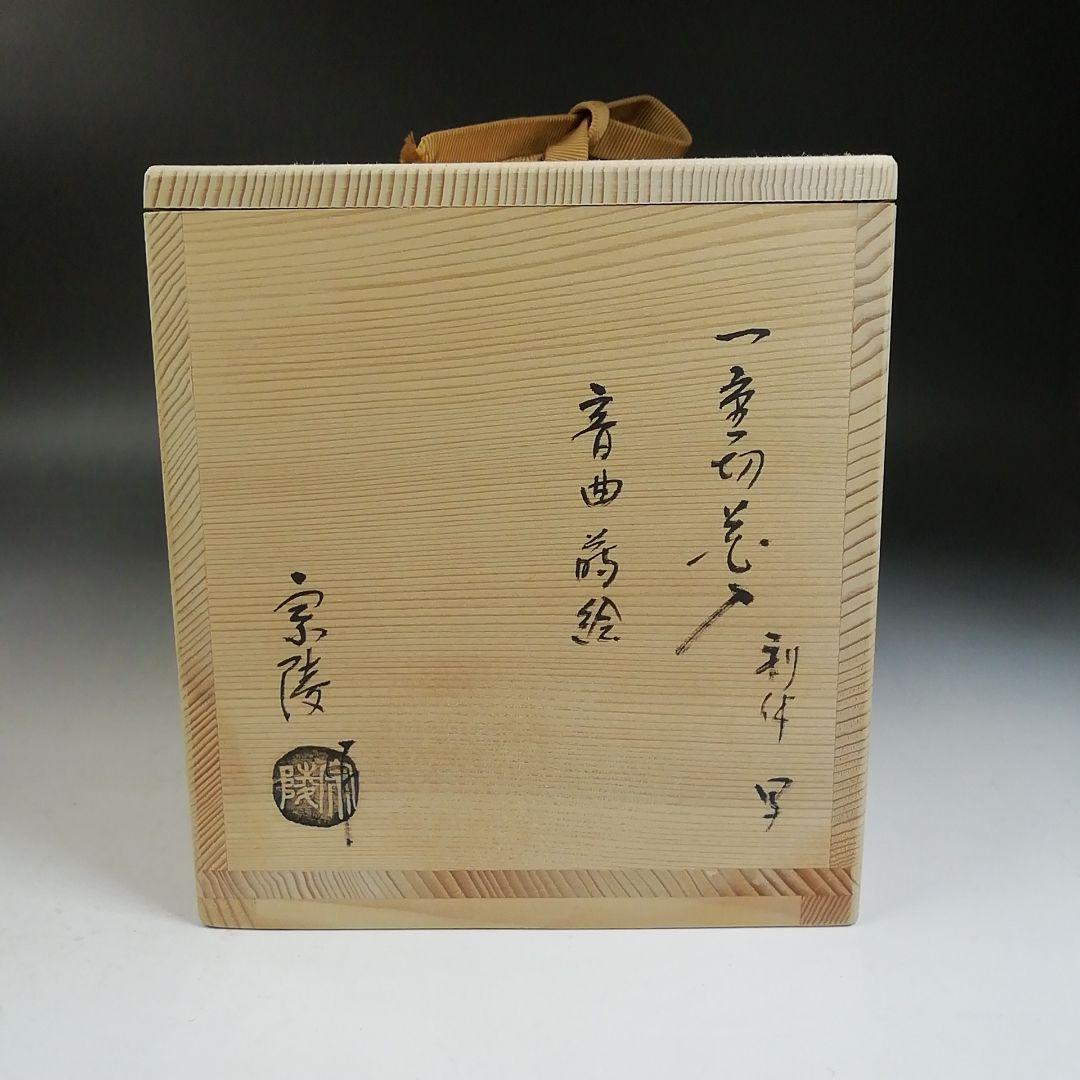 一重切花入 利休 写
音曲蒔絵
宗陵
宗陵